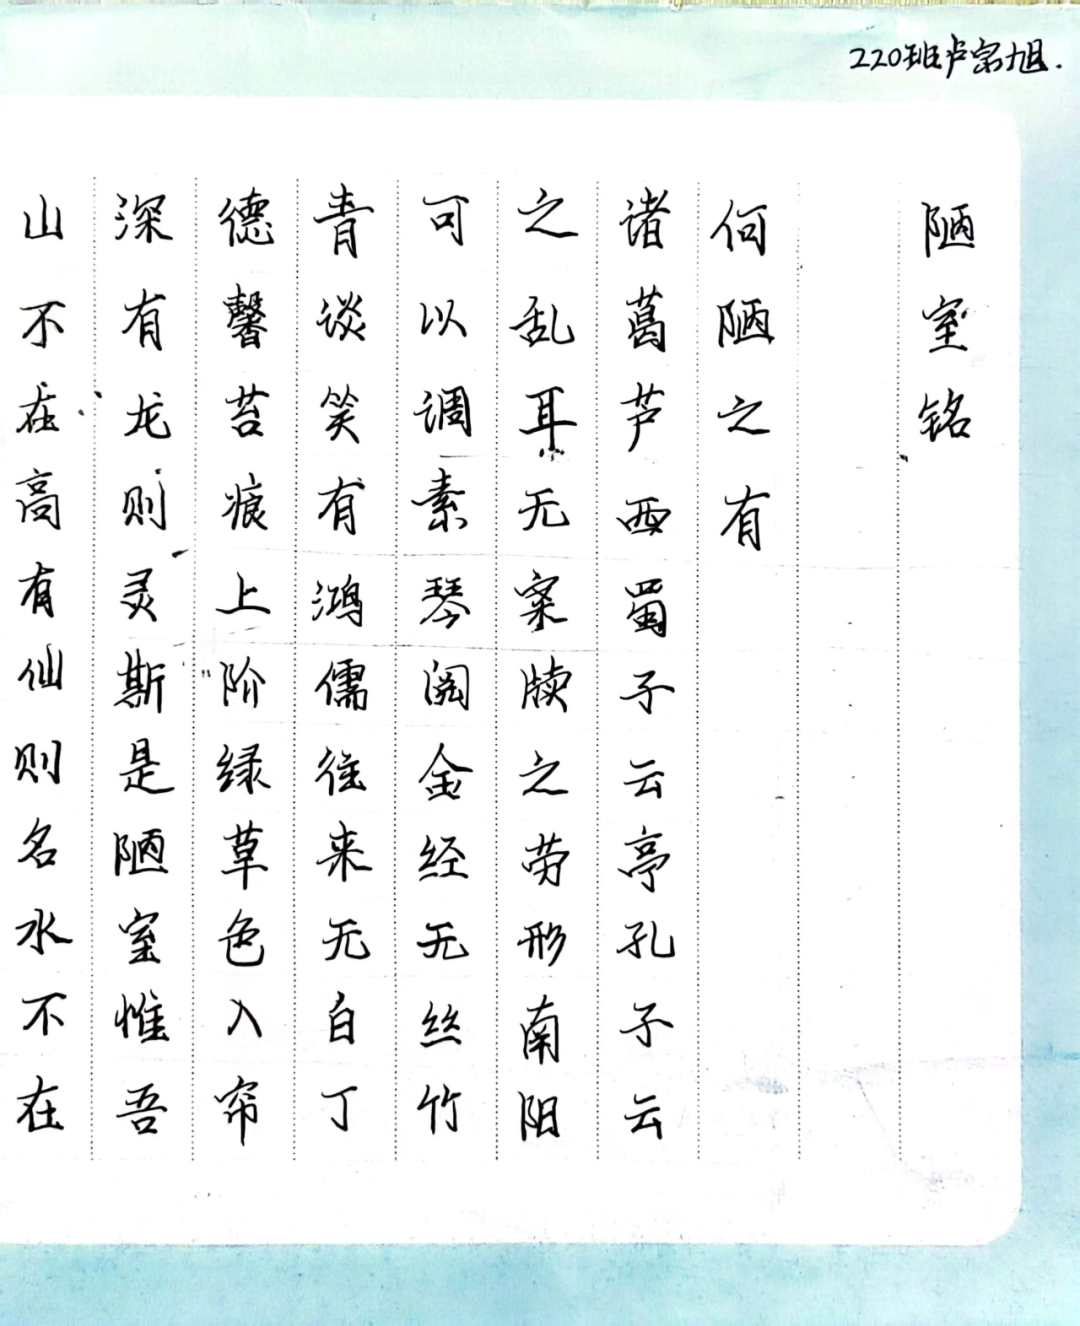 220班卢宗旭.
陋室铭
山不在高有仙则名水不在
深有龙则灵斯是陋室惟吾
德馨苔痕上阶绿草色入帘
青谈笑有鸿儒往来无白丁
可以调素琴阅金经无丝竹
之乱耳无案牍之劳形南阳
诸葛芦西蜀子云亭孔子云
何陋之有